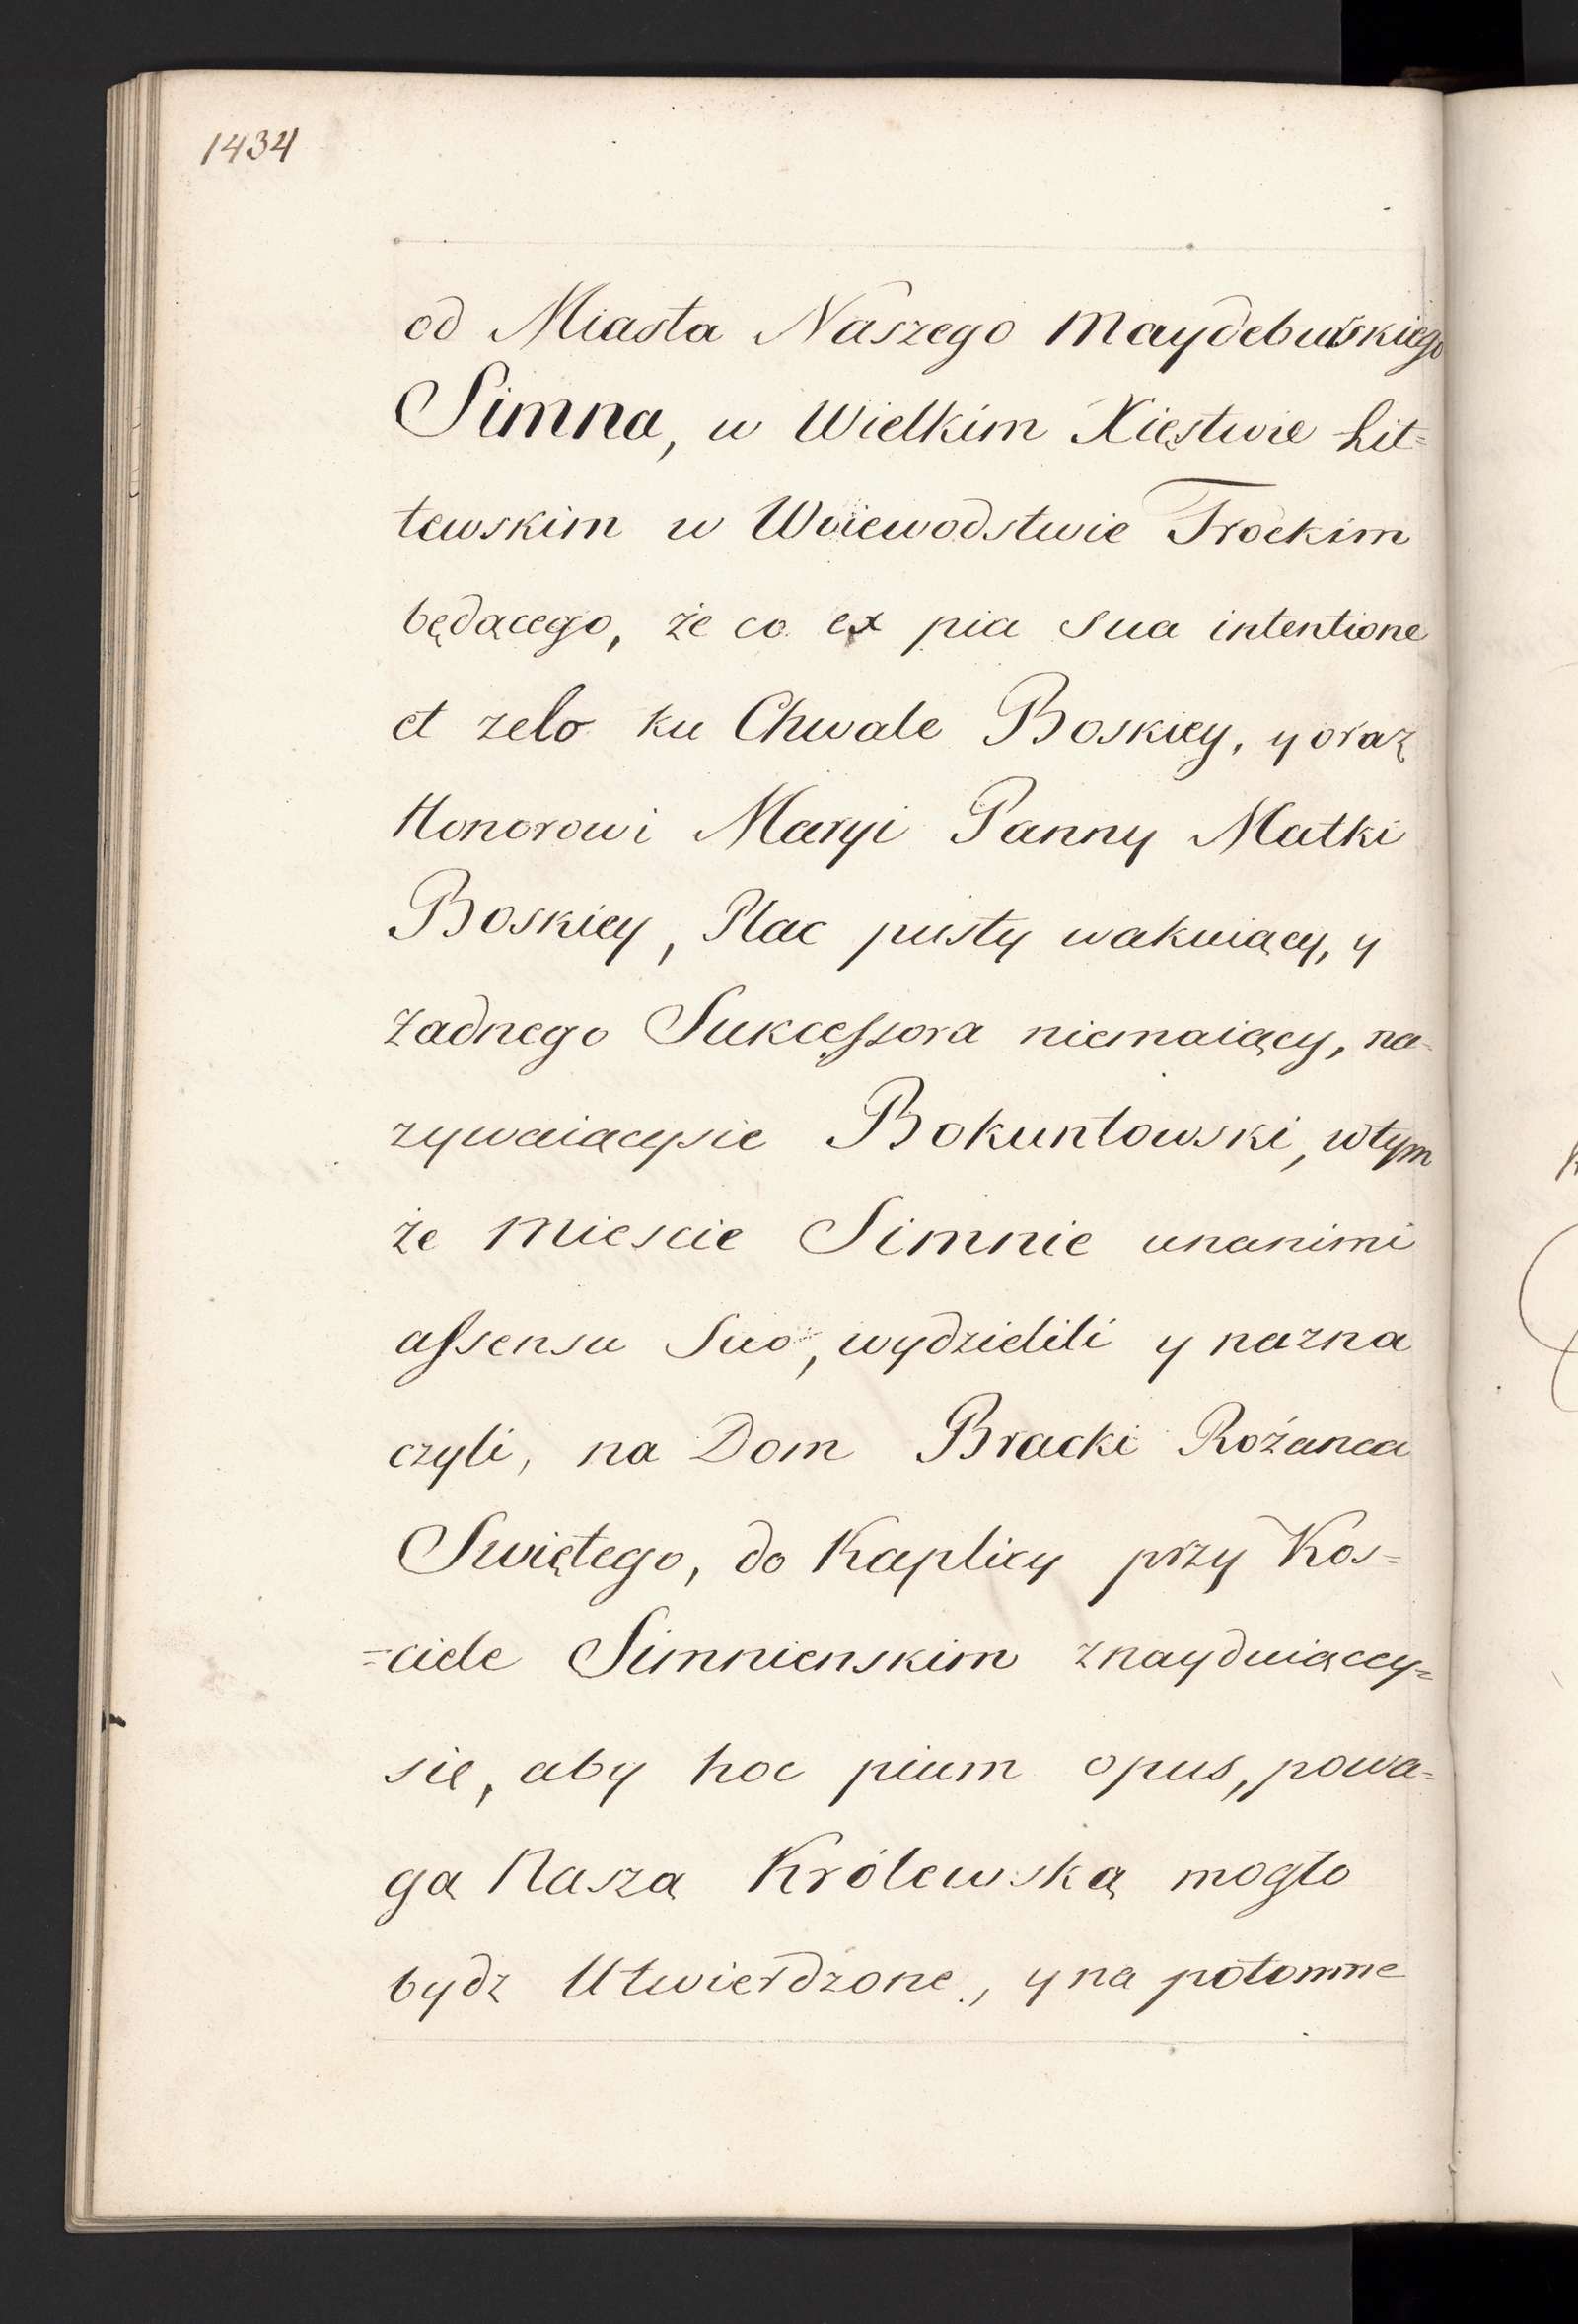 1434
od Miasta Naszego Maydeburskiego
Simna, w Wielkim Xięstwie Lit=
tewskim w Woiewodstwie Trockim
będącego, że co ex pia sua intentione
et zelo ku Chwale Boskiey, y oraz
Honorowi Maryi Panny Matki
Boskiey, Plac pusty wakuiący, y
żadnego Sukcessora niemaiący, na-
zywaiącysie Bokuntowski, wtym
że Miescie Simnie unanimi
assensu Suo, wydzielili y nazna
czyli, na Dom Bracki Rożanca
Swiętego, do Kaplicy przy Kos=
=ciele Simnienskim znayduiącey=
się, aby hoc pium opus, powa=
gą Naszą Królewską mogło
bydz Utwierdzone, y na potomne